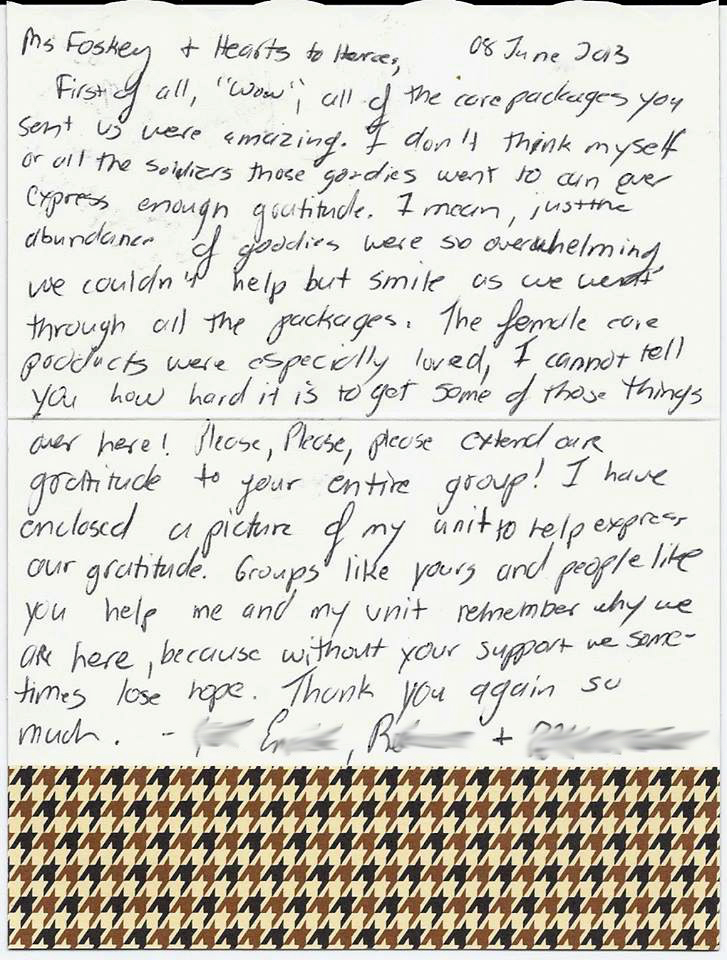 Ms Foskey + Hearts to Heroes, 08 June 2013
First of all, "Wow", all of the care packages you
sent us were amazing. I don't think myself
or all the soldiers those goodies went to can ever
express enough gratitude. I mean, just the
abundance of goodies were so overwhelming
we couldn't help but smile as we went
through all the packages. The female care
products were especially loved, I cannot tell
you how hard it is to get some of those things
over here! Please, Please, please extend our
gratitude to your entire group! I have
enclosed a picture of my unit to help express
our gratitude. Groups like yours and people like
you help me and my unit remember why we
are here, because without your support we some-
times lose hope. Thank you again so
much. - +